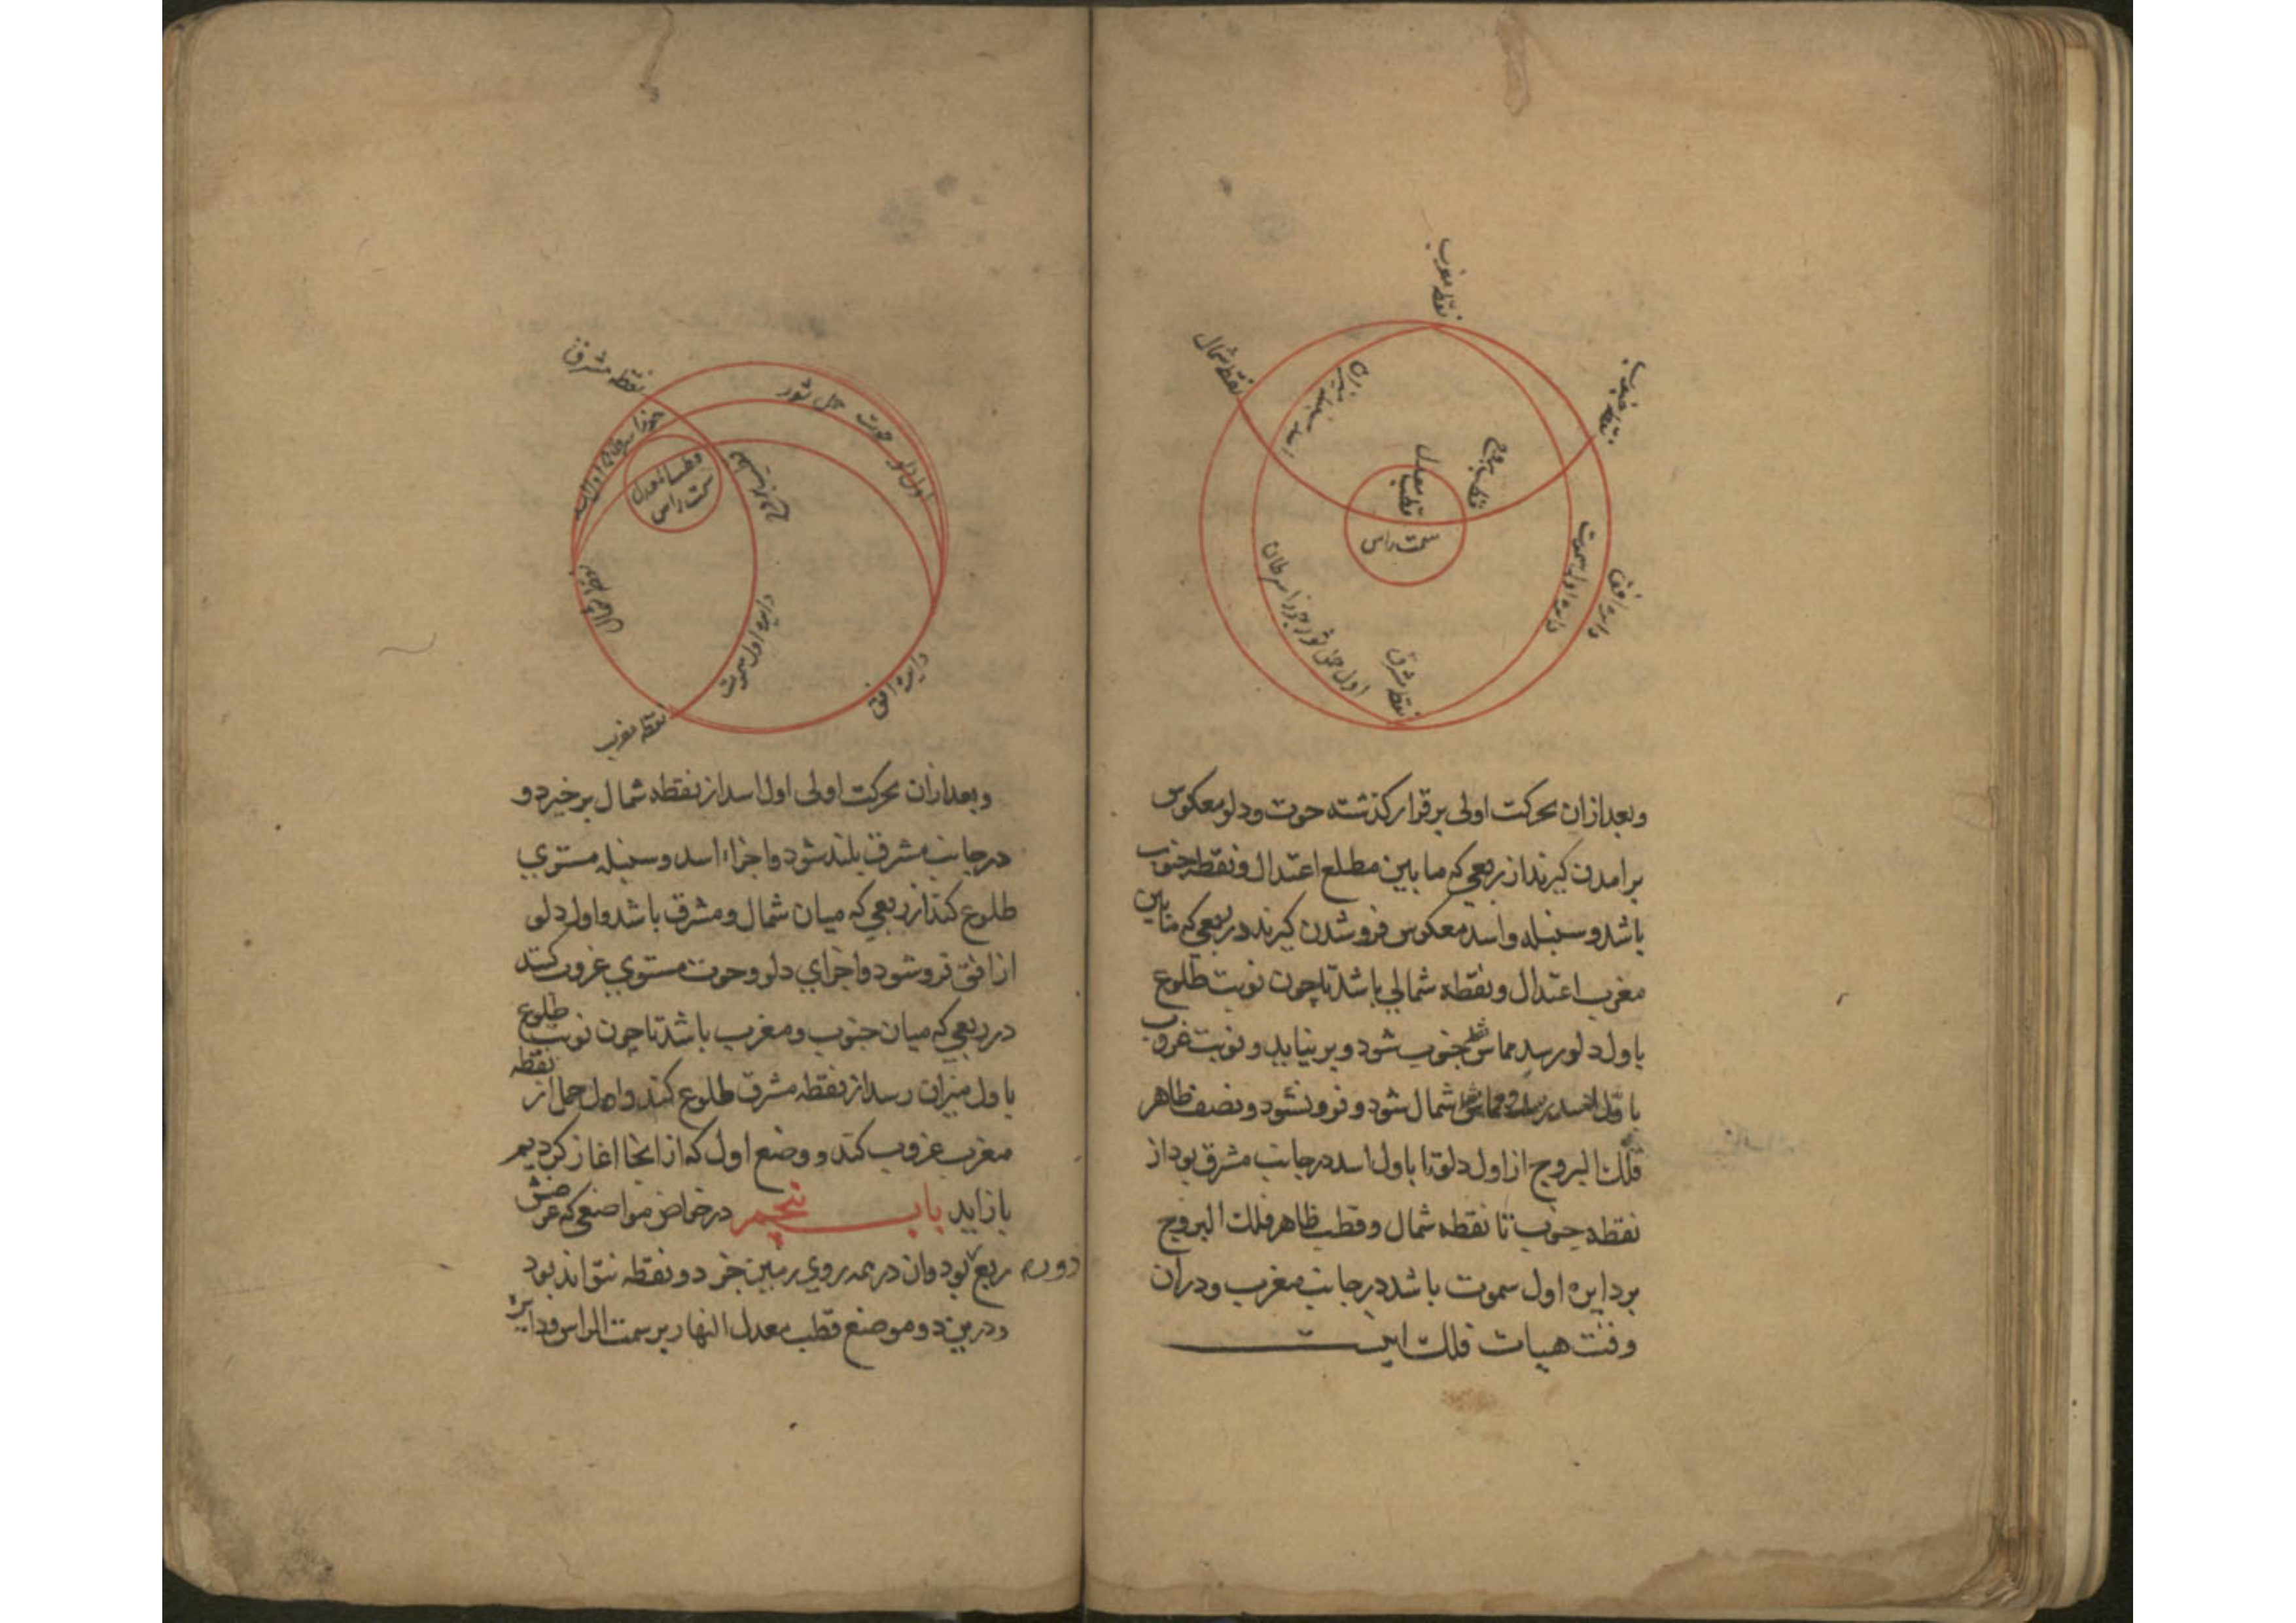 نقطه مغرب
نقطه شمال
نقطه جنوب
اسد سنبله میزان
قطب معدل
قطب بروج
سمت راس
دایره اول سموت
دایره افق
اول حمل ثور جوزا سرطان
نقطه مشرق
و بعد ازان بحرکت اولی برقرار کذشته حوت و دلو معکوس
برامدن کیرند از ربعی که ما بین مطلع اعتدال و نقطه جنوب
باشد و سنبله و اسد معکوس فرو شدن کیرند در ربعی که ما بین
مغرب اعتدال و نقطه شمالی باشد تا چون نوبت طلوع
باول دلو رسد مماس نقطه جنوب شود و بر نیاید و نوبت غروب
باول اسد رسد و مماس شمال شود و فرو نشود و نصف ظاهر
فلك البروج از اول دلو تا باول اسد در جانب مشرق بود از
نقطه جنوب تا نقطه شمال و قطب ظاهر فلك البروج
بر دایره اول سموت باشد در جانب مغرب و دران
وقت هیات فلك اینست
نقطه مشرق
حمل ثور
حوت
اول دلو
سمت راس
نقطه شمال
دایره اول سموت
دایره افق
نقطه مغرب
و بعد ازان بحرکت اولی اول اسد از نقطه شمال برخیزد و
در جانب مشرق بلند شود و اجزاء اسد و سنبله مستوی
طلوع کند از ربعی که میان شمال و مشرق باشد و اول دلو
از افق فرو شود و اجزای دلو و حوت مستوی غروب کند
در ربعی که میان جنوب و مغرب باشد تا چون نوبت طلوع
باول میزان رسد از نقطه مشرق طلوع کند و اول حمل از نقطه
مغرب غروب کند و وضع اول که از انجا اغاز کردیم
باز اید باب پنجم در خواص مواضعی که عرضش
ربع دوره بود و ان در همه روی زمین جز دو نقطه نتواند بود
و درین دو موضع قطب معدل النهار بر سمت الراس و دایره